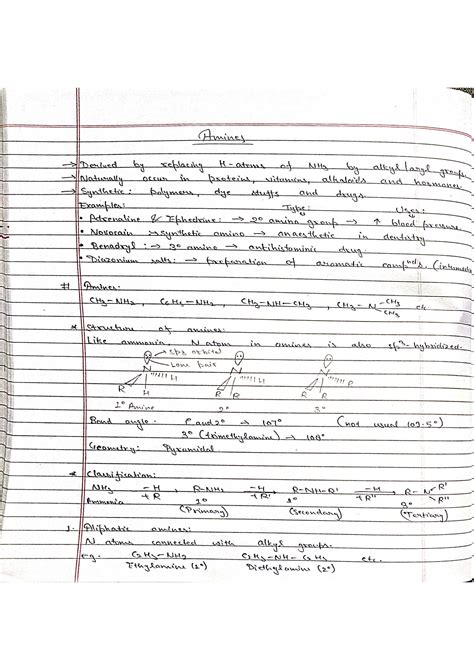 Amines
→ Derived by replacing H-atoms of NH3 by alkyl/aryl groups
→ Naturally occur in proteins, vitamins, alkaloids and hormones
→ Synthetic: polymers, dye stuffs and drugs.
Examples: Type: Uses:
• Adrenaline & Ephedrine: → 2° amino group → ↑ blood pressure
• Novocain → synthetic amino → anaesthetic in dentistry
• Benadryl: → 3° amino → antihistaminic drug.
• Diazonium salts: → preparation of aromatic compnds.
# Amines:
CH3-NH2, C6H5-NH2, CH3-NH-CH3, CH3-N-CH3 etc
CH3
* Structure of amines:
Like ammonia, N atom in amines is also sp3-hybridized.
sp3 orbital
Lone pair
N N N
R H H R R H R R R
1° Amine 2° 3°
Bond angle - 1° and 2° → 107° (not usual 109.5°)
3° (trimethylamine) → 108°
Geometry: Pyramidal
* Classification:
NH3 -H +R → R-NH2 -H +R' → R-NH-R' -H +R" → R-N R' R"
Ammonia 1° 2° 3°
(Primary) (Secondary) (Tertiary)
1. Aliphatic amines:
N atoms connected with alkyl groups.
e.g. C2H5-NH2 C2H5-NH-C2H5 etc.
Ethylamine (1°) Diethylamine (2°)